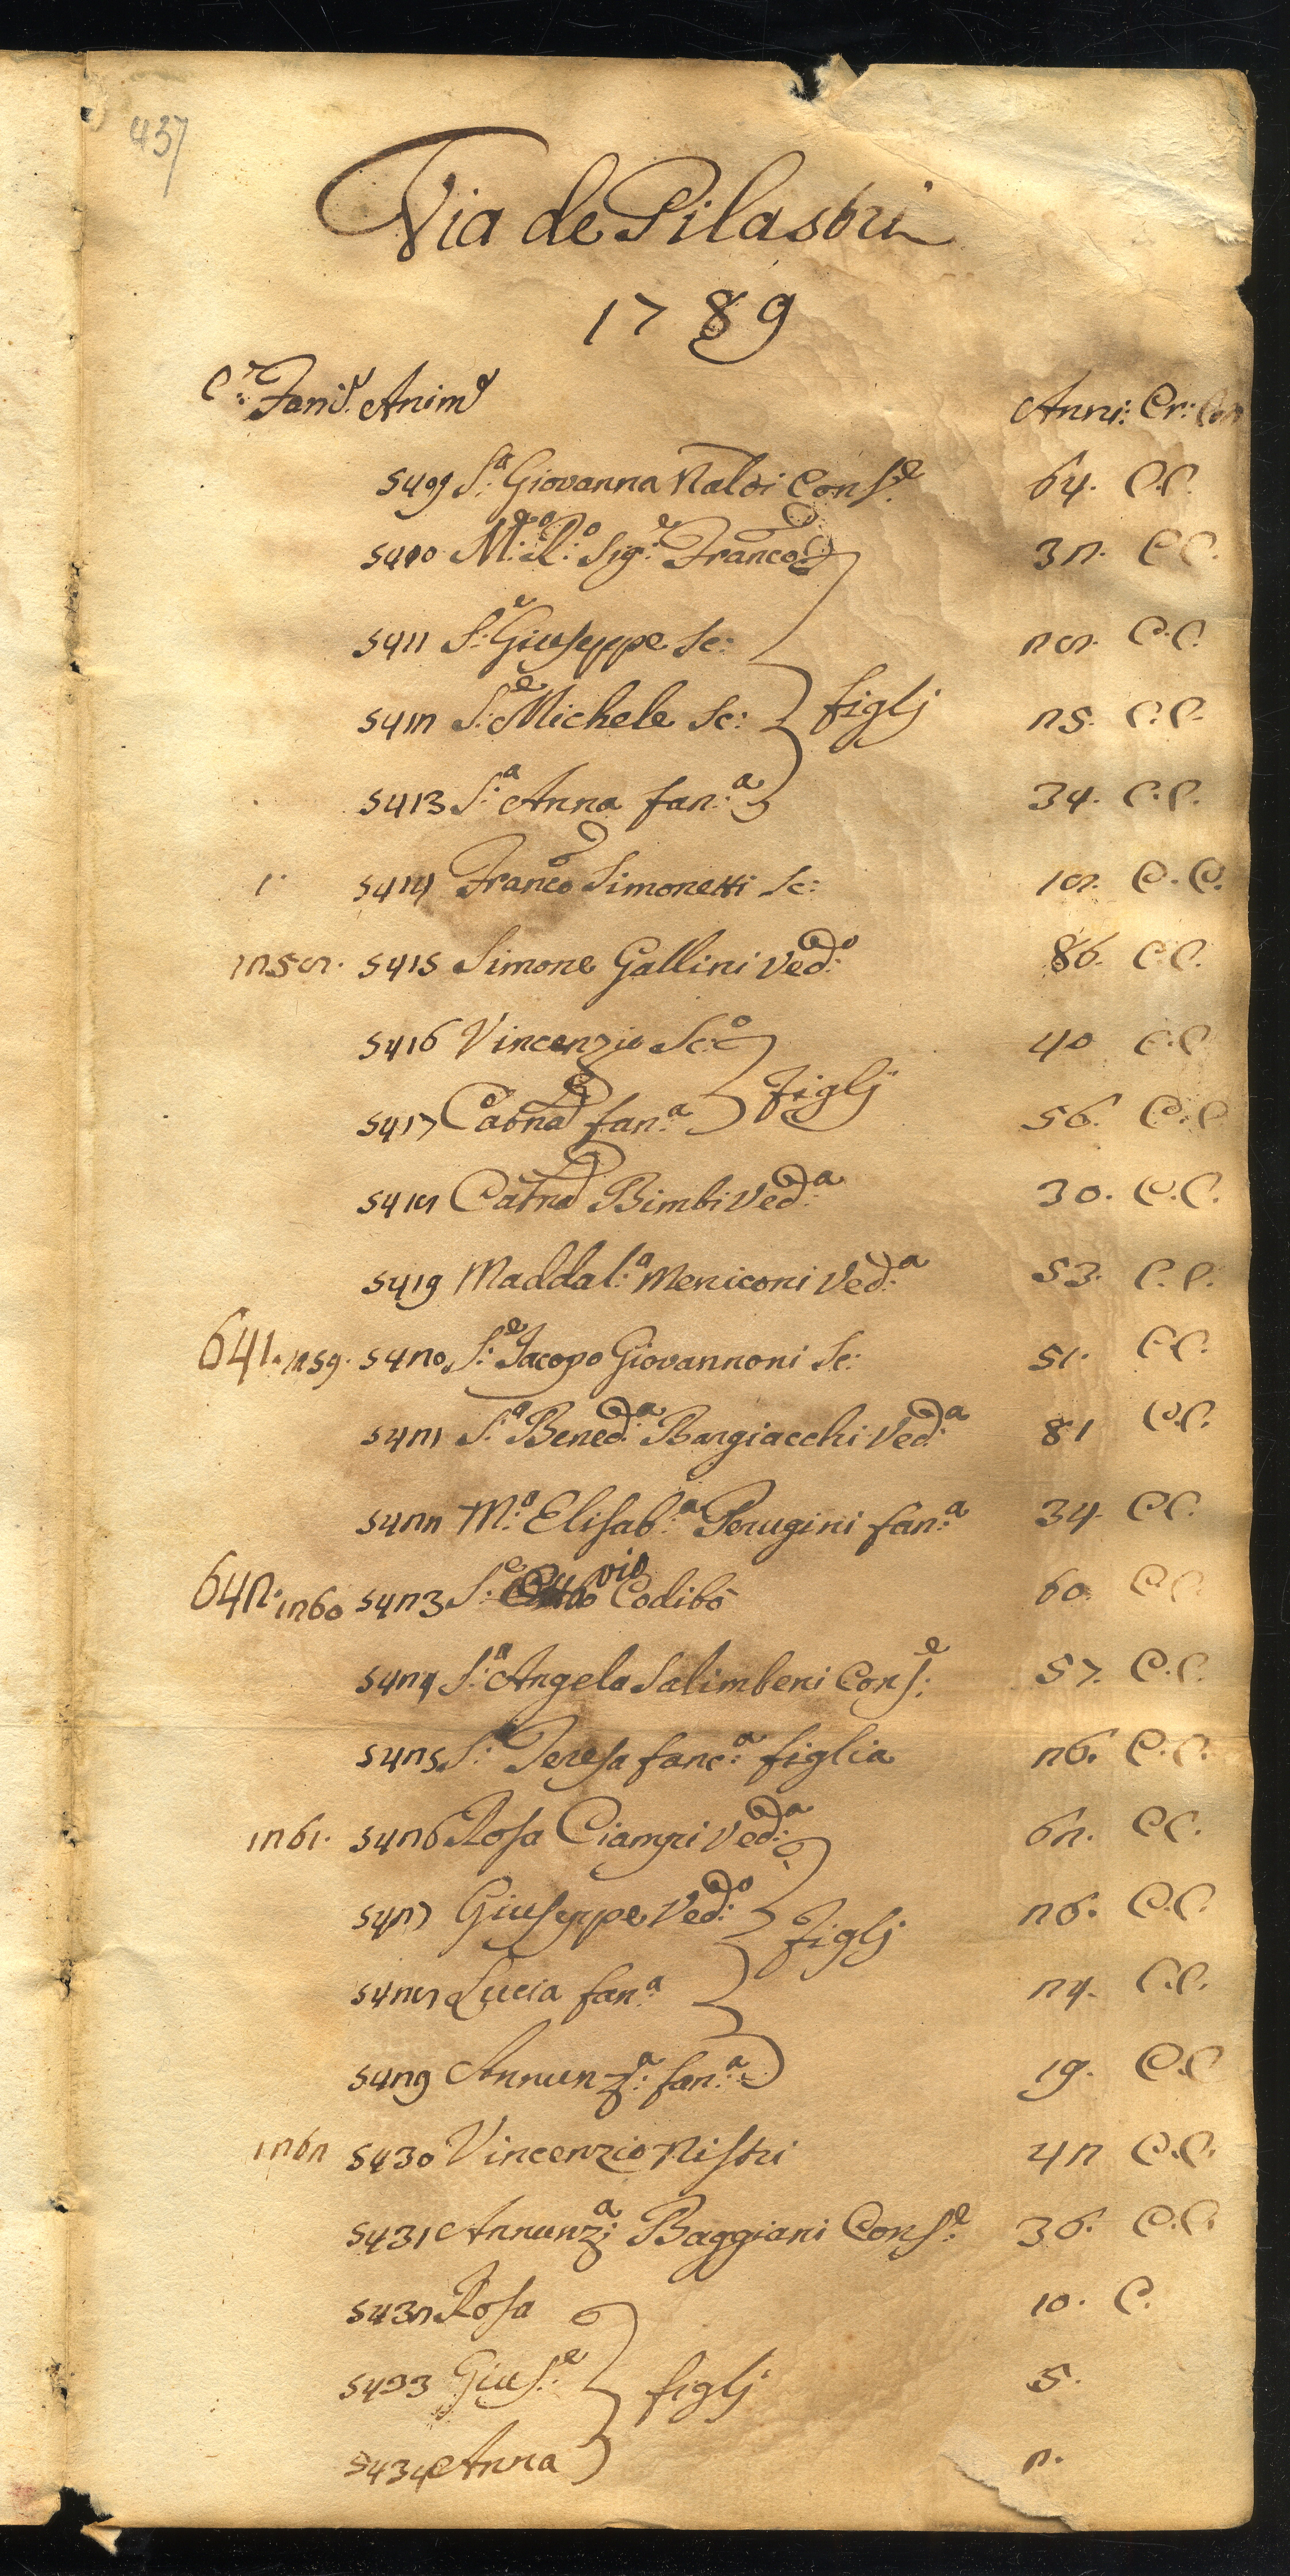 437
Via de Pilastri
1789
C.e Fami.e Anim.e Anni: Cr: Com
5409 S:a Giovanna Naldi Cons:e 64. C.C.
5410 M:to R:do Sig:e Franco 32. C.C.
5411 S:e Giuseppe Sc: 28. C.C.
5412 S:e Michele Sc: figlj 25. C.C.
5413 S:a Anna fan:a 34. C.C.
1. 5414 Franco Simonetti Sc: 18. C.C.
1258. 5415 Simone Gallini Ved:o 86. C.C.
5416 Vincenzio Sc:o 40 C.C.
5417 Catna fan:a figlj 56. C.C
5418 Catna Bimbi Ved:a 30. C.C.
5419 Maddal:a Meniconi Ved:a 53. C.C.
641. 1259. 5420 S:e Jacopo Giovannoni Sc: 51. C.C.
5421 S:a Bened:a Bargiacchi Ved:a 81 C.C.
5422 M:a Elisab:a Perugini fan:a 34. C.C.
642. 1260 5423 S:e Ottavio Codibò 60. C.C
5424 S:a Angela Salimbeni Cons:e 57. C.C.
5425 S:a Teresa fanc:a figlia 26. C.C.
1261. 5426 Rosa Ciampi Ved:a 62. C.C.
5427 Giuseppe Ved:o figlj 26. C.C.
5428 Lucia fan:a 24. C.C.
5429 Annunz:a fan:a 19. C.C
1262 5430 Vincenzio Nistri 42 C.C.
5431 Annunz:a Baggiani Cons:e 36. C.C.
5432 Rosa 10. C.
5433 Gius:e figlj 5.
5434 Anna 2.